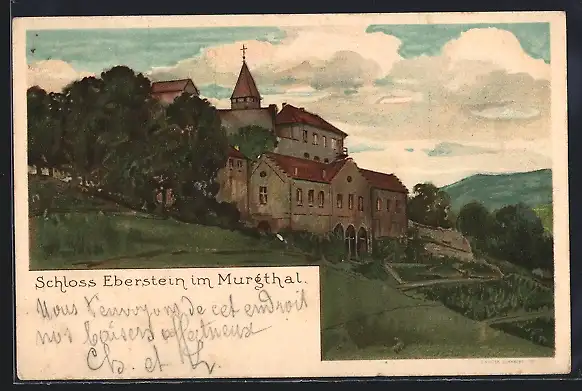 Schloss Eberstein im Murgthal.
Vous envoyons de cet endroit
nos baisers affectueux
Ch. et L.